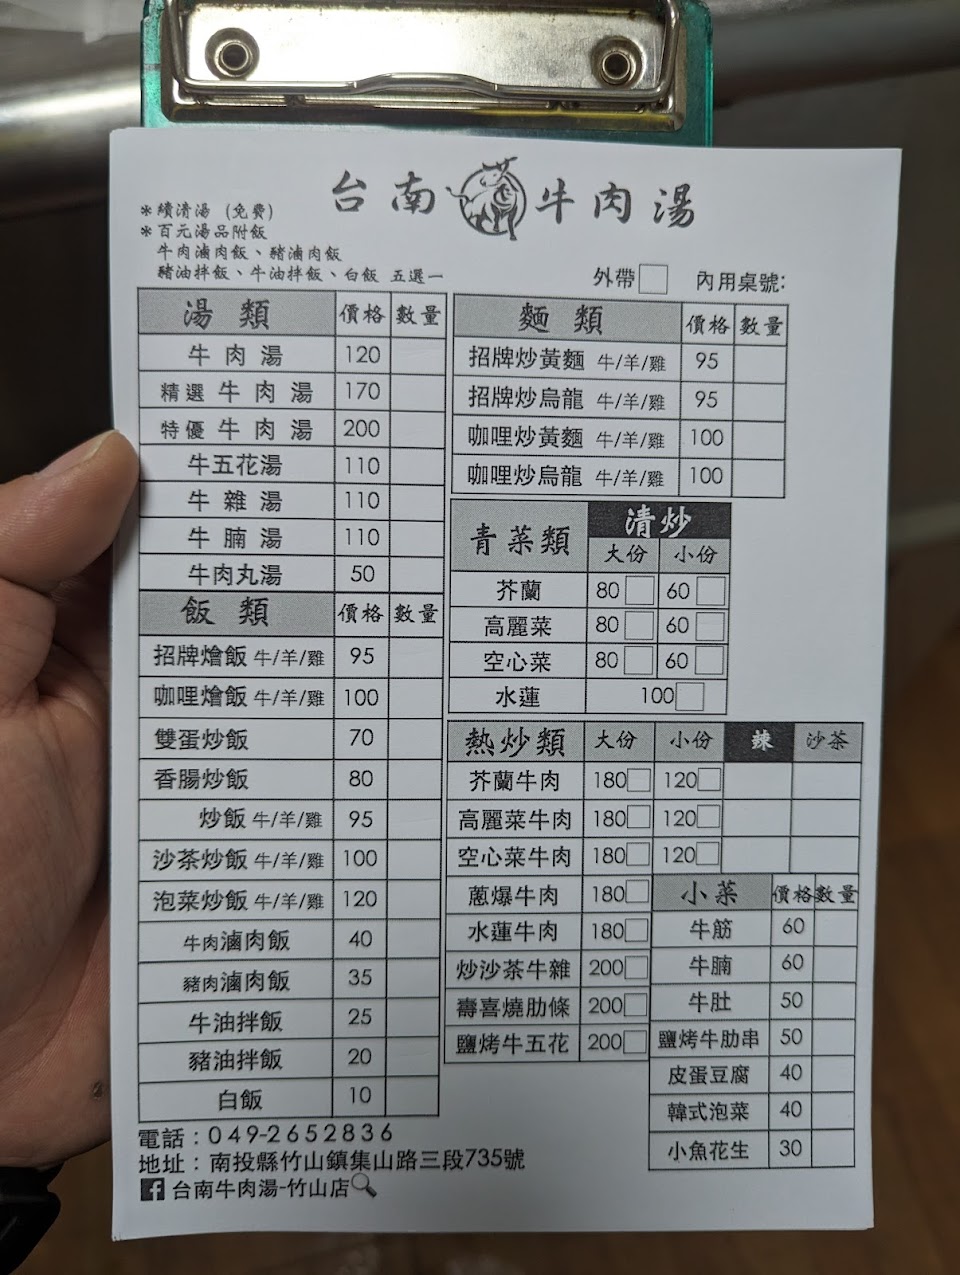 台南 牛肉湯
＊續清湯 (免費)
＊百元湯品附飯
牛肉滷肉飯、豬滷肉飯
豬油拌飯、牛油拌飯、白飯 五選一
外帶□ 內用桌號:
湯類 價格 數量
牛肉湯 120
精選 牛肉湯 170
特優 牛肉湯 200
牛五花湯 110
牛雜湯 110
牛腩湯 110
牛肉丸湯 50
飯類 價格 數量
招牌燴飯 牛/羊/雞 95
咖哩燴飯 牛/羊/雞 100
雙蛋炒飯 70
香腸炒飯 80
炒飯 牛/羊/雞 95
沙茶炒飯 牛/羊/雞 100
泡菜炒飯 牛/羊/雞 120
牛肉滷肉飯 40
豬肉滷肉飯 35
牛油拌飯 25
豬油拌飯 20
白飯 10
麵類 價格 數量
招牌炒黃麵 牛/羊/雞 95
招牌炒烏龍 牛/羊/雞 95
咖哩炒黃麵 牛/羊/雞 100
咖哩炒烏龍 牛/羊/雞 100
青菜類 清炒
大份 小份
芥蘭 80□ 60□
高麗菜 80□ 60□
空心菜 80□ 60□
水蓮 100□
熱炒類 大份 小份 辣 沙茶
芥蘭牛肉 180□ 120□
高麗菜牛肉 180□ 120□
空心菜牛肉 180□ 120□
蔥爆牛肉 180□
水蓮牛肉 180□
炒沙茶牛雜 200□
壽喜燒肋條 200□
鹽烤牛五花 200□
小菜 價格 數量
牛筋 60
牛腩 60
牛肚 50
鹽烤牛肋串 50
皮蛋豆腐 40
韓式泡菜 40
小魚花生 30
電話：049-2652836
地址：南投縣竹山鎮集山路三段735號
f 台南牛肉湯-竹山店